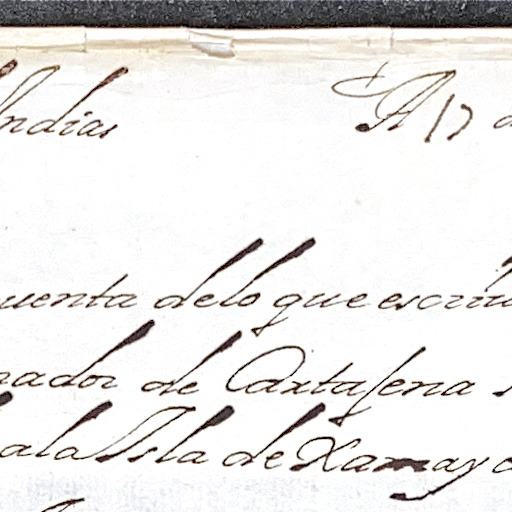 Indias A 17 d
uenta delo que escriu
nador de Cartagena
ala Isla de Xamayc